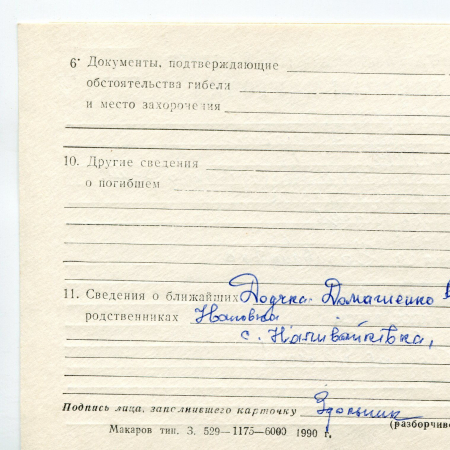 6. Документы, подтверждающие
обстоятельства гибели
и место захоронения
10. Другие сведения
о погибшем
11. Сведения о ближайших Дочка Домашенко
родственниках Ивановна
с. Наливайківка,
Подпись лица, заполнившего карточку
(разборчиво
Макаров тип. З. 529—1175—6000 1990 г.